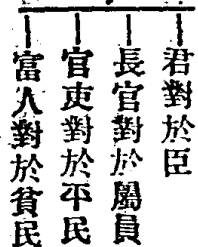 君對於臣
長官對於屬員
官吏對於平民
富人對於貧民